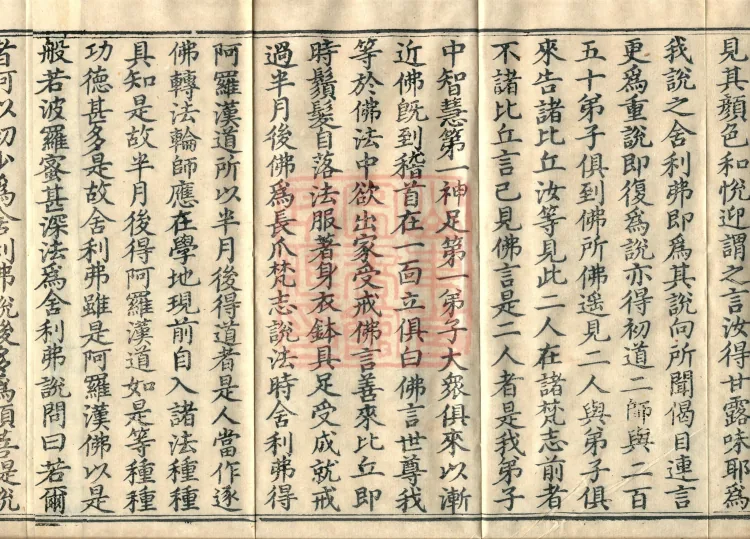 見其顏色和悅迎謂之言汝得甘露味耶為
我說之舍利弗即為其說向所聞偈目連言
更為重說即復為說亦得初道二師與二百
五十弟子俱到佛所佛遙見二人與弟子俱
來告諸比丘汝等見此二人在諸梵志前者
不諸比丘言已見佛言是二人者是我弟子
中智慧第一神足第一弟子大眾俱來以漸
近佛既到稽首在一面立俱白佛言世尊我
等於佛法中欲出家受戒佛言善來比丘即
時鬚髮自落法服著身衣鉢具足受成就戒
過半月後佛為長爪梵志說法時舍利弗得
阿羅漢道所以半月後得道者是人當作逐
佛轉法輪師應在學地現前自入諸法種種
具知是故半月後得阿羅漢道如是等種種
功德甚多是故舍利弗雖是阿羅漢佛以是
般若波羅蜜甚深法為舍利弗說問曰若爾
者何以初少為舍利弗說後多為須菩提說